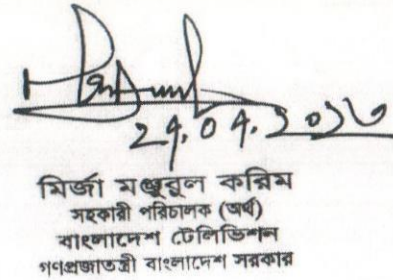 ২৭.০৭.২০১৬
মির্জা মঞ্জুরুল করিম
সহকারী পরিচালক (অর্থ)
বাংলাদেশ টেলিভিশন
গণপ্রজাতন্ত্রী বাংলাদেশ সরকার